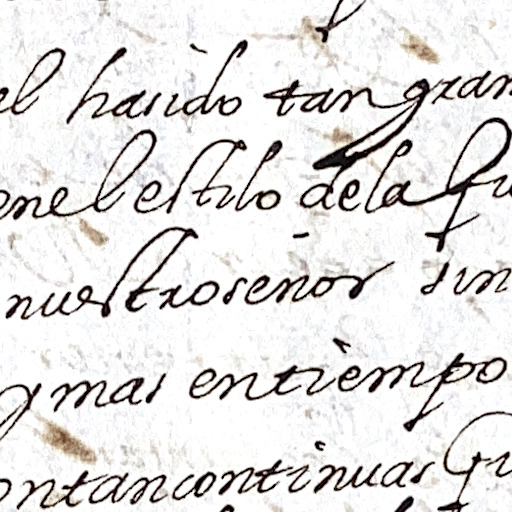 el hasido tan gran
enel estilo dela fu
nuestro señor sin
y mas entiempo
ontan continuas qu